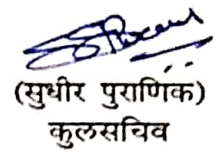 (सुधीर पुराणिक)
कुलसचिव